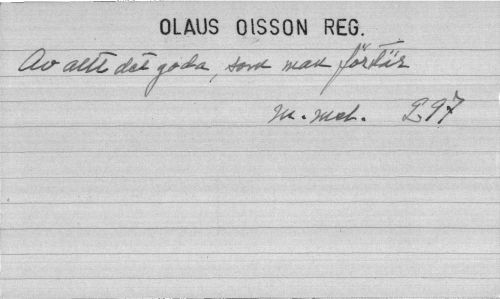 OLAUS OISSON REG.
Av allt det goda, som man förtär
m. mel. L 97